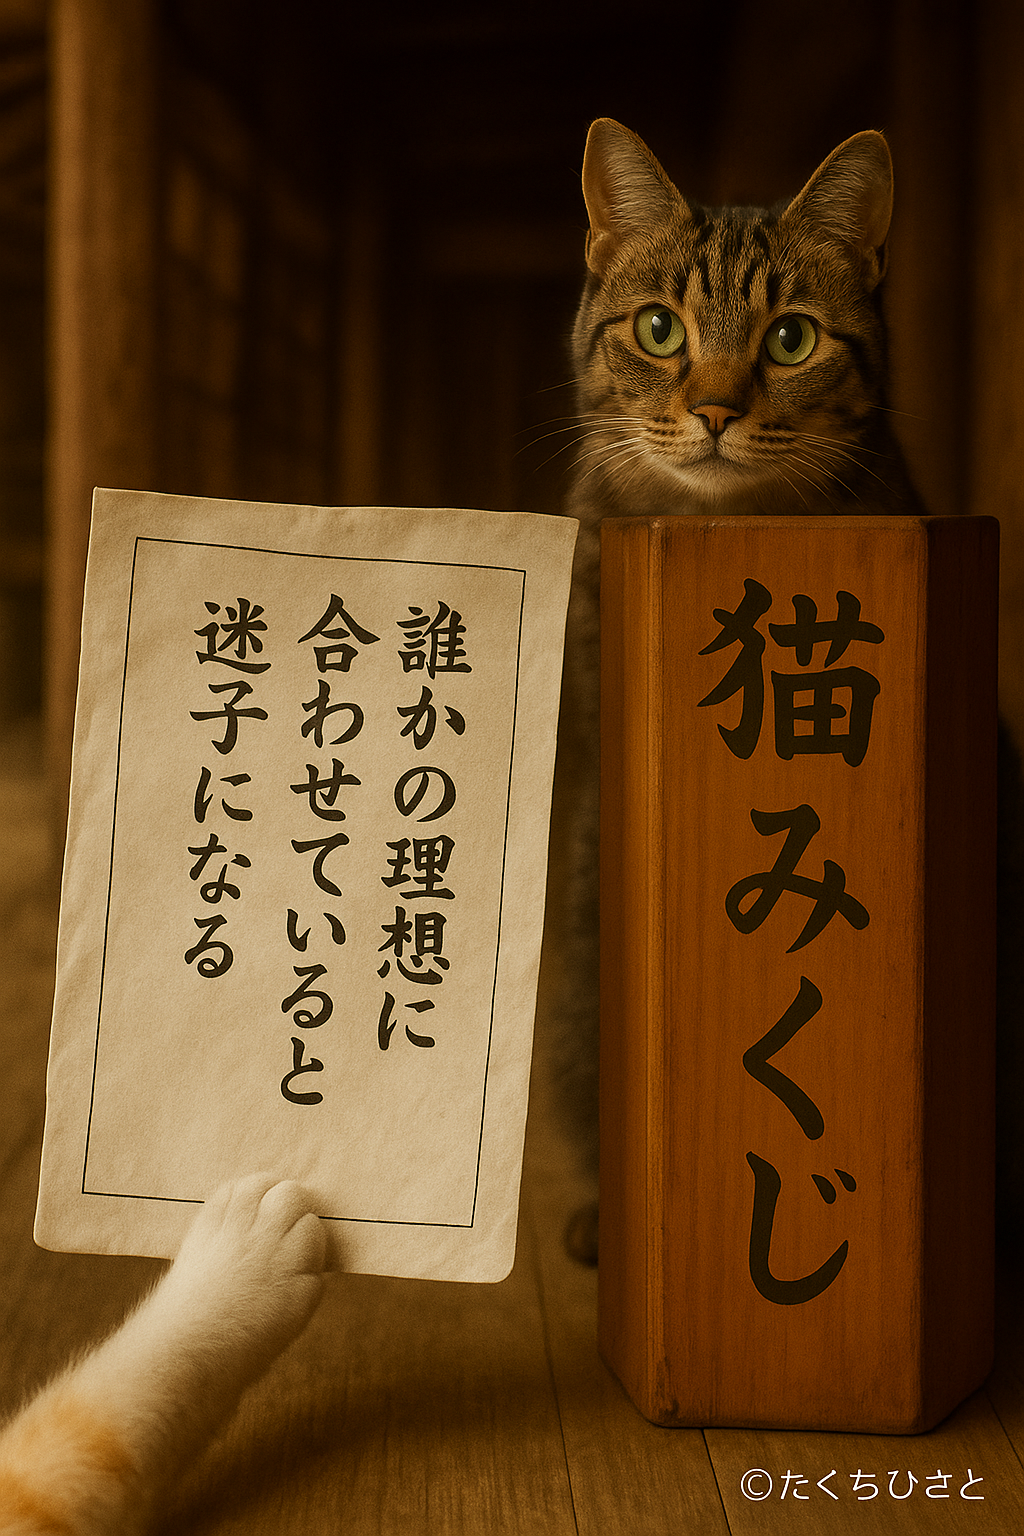 誰かの理想に
合わせていると
迷子になる
猫みくじ
©たくちひさと